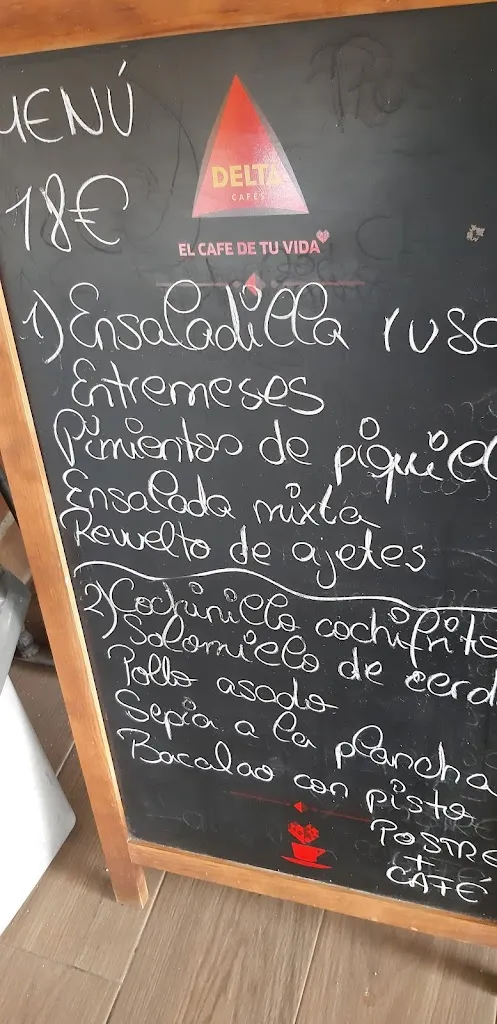 MENÚ
18€
DELTA
CAFÉS
EL CAFE DE TU VIDA
1) Ensaladilla rusa
Entremeses
Pimientos de piquill
Ensalada mixta
Revuelto de ajetes
2) Cochinillo cochifrito
Solomillo de cerd
Pollo asado
Sepia a la plancha
Bacalao con pisto
POSTRE
+
CAFÉ